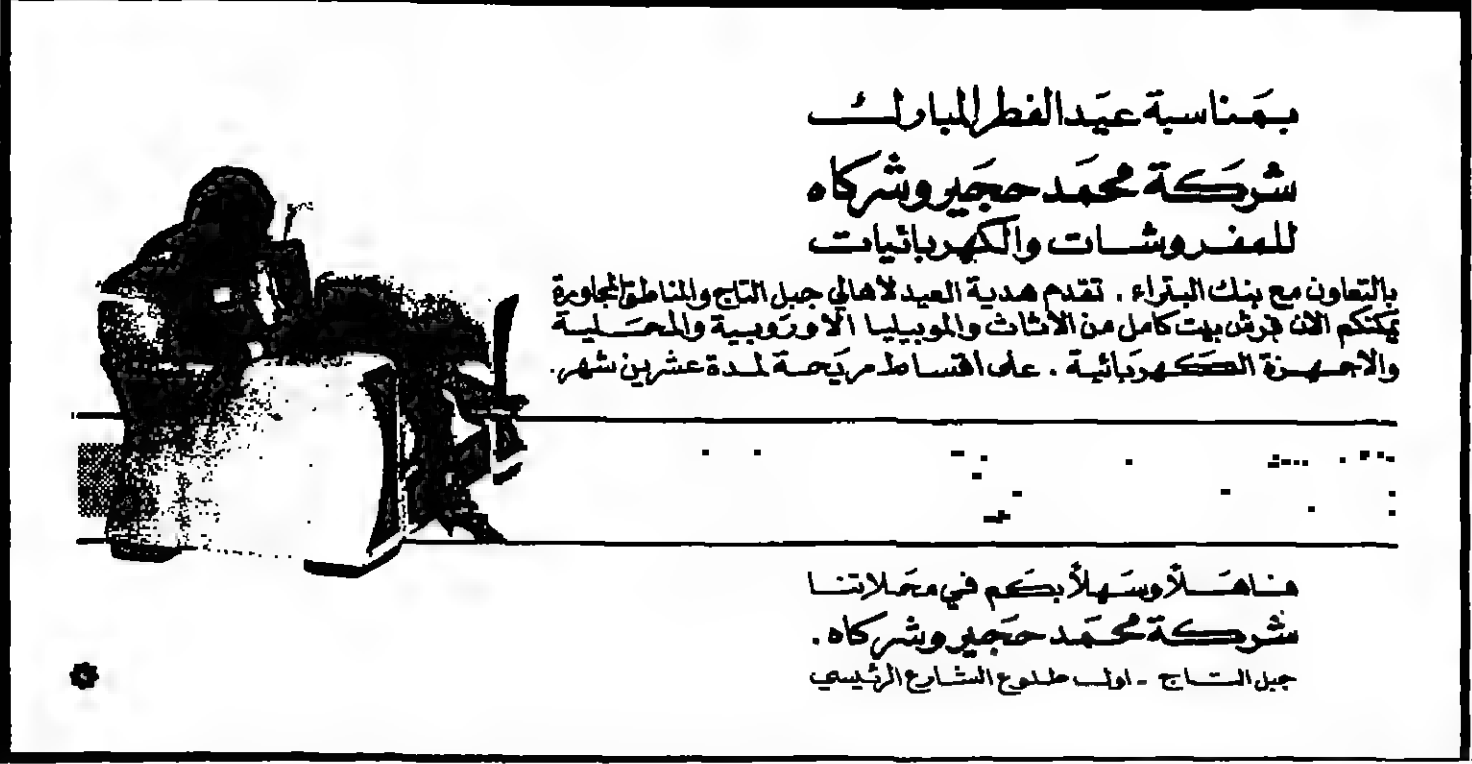 بمناسبة عيد الفطر المبارك
شركة محمد حجير وشركاه
للمفروشات والكهربائيات
بالتعاون مع بنك البتراء . تقدم هدية العيد لأهالي جبل التاج والمناطق المجاورة
يمكنكم الآن فرش بيت كامل من الأثاث والموبيليا الأوروبية والمحلية
والاجهزة الكهربائية . على اقساط مريحة لمدة عشرين شهر.
فأهلاً وسهلاً بكم في محلاتنا
شركة محمد حجير وشركاه .
جبل التاج - اول طلوع الشارع الرئيسي